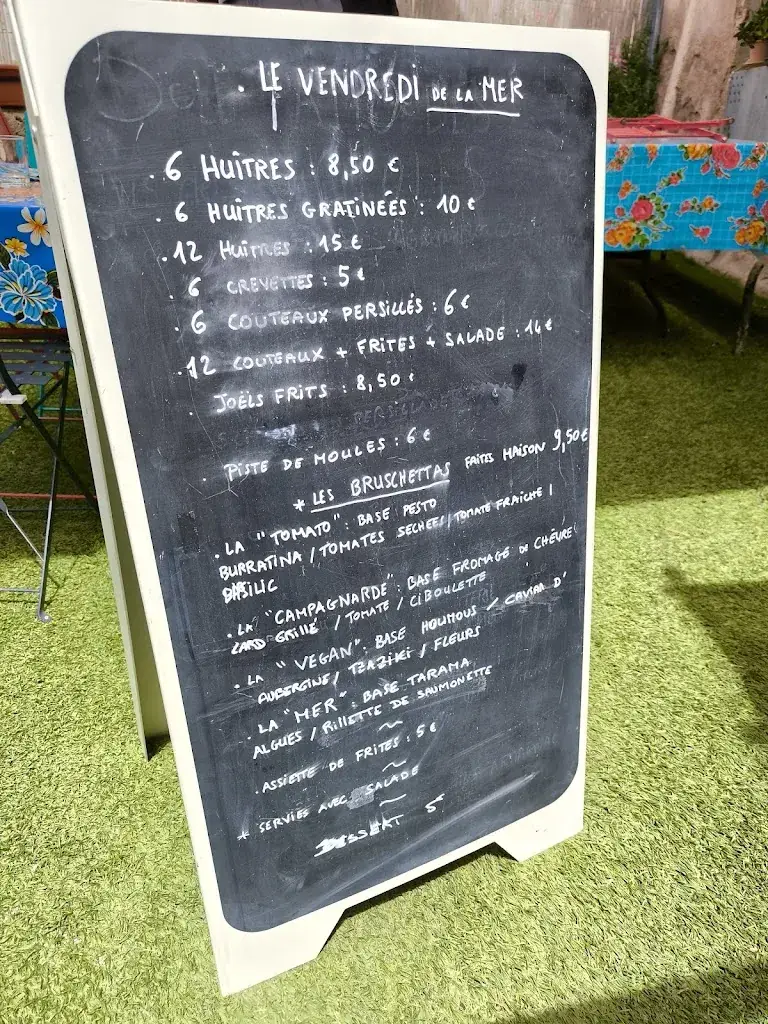 . LE VENDREDI DE LA MER
. 6 HUÎTRES : 8,50 €
. 6 HUÎTRES GRATINÉES : 10 €
. 12 HUÎTRES : 15 €
6 CREVETTES : 5 €
. 6 COUTEAUX PERSILLÉS : 6 €
. 12 COUTEAUX + FRITES + SALADE : 14 €
. JOËLS FRITS : 8,50 €
. PISTE DE MOULES : 6 €
* LES BRUSCHETTAS FAITES MAISON 9,50 €
. LA "TOMATO" : BASE PESTO
BURRATINA / TOMATES SECHEES / TOMATE FRAICHE /
BASILIC
. LA "CAMPAGNARDE" : BASE FROMAGE DE CHÈVRE /
LARD GRILLÉ / TOMATE / CIBOULETTE
. LA "VEGAN" : BASE HOUMOUS / CAVIAR D'
AUBERGINE / TZAZIKI / FLEURS
. LA "MER" : BASE TARAMA
ALGUES / RILLETTE DE SAUMONETTE
~
. ASSIETTE DE FRITES : 5 €
~
* SERVIES AVEC SALADE
~
DESSERT 5